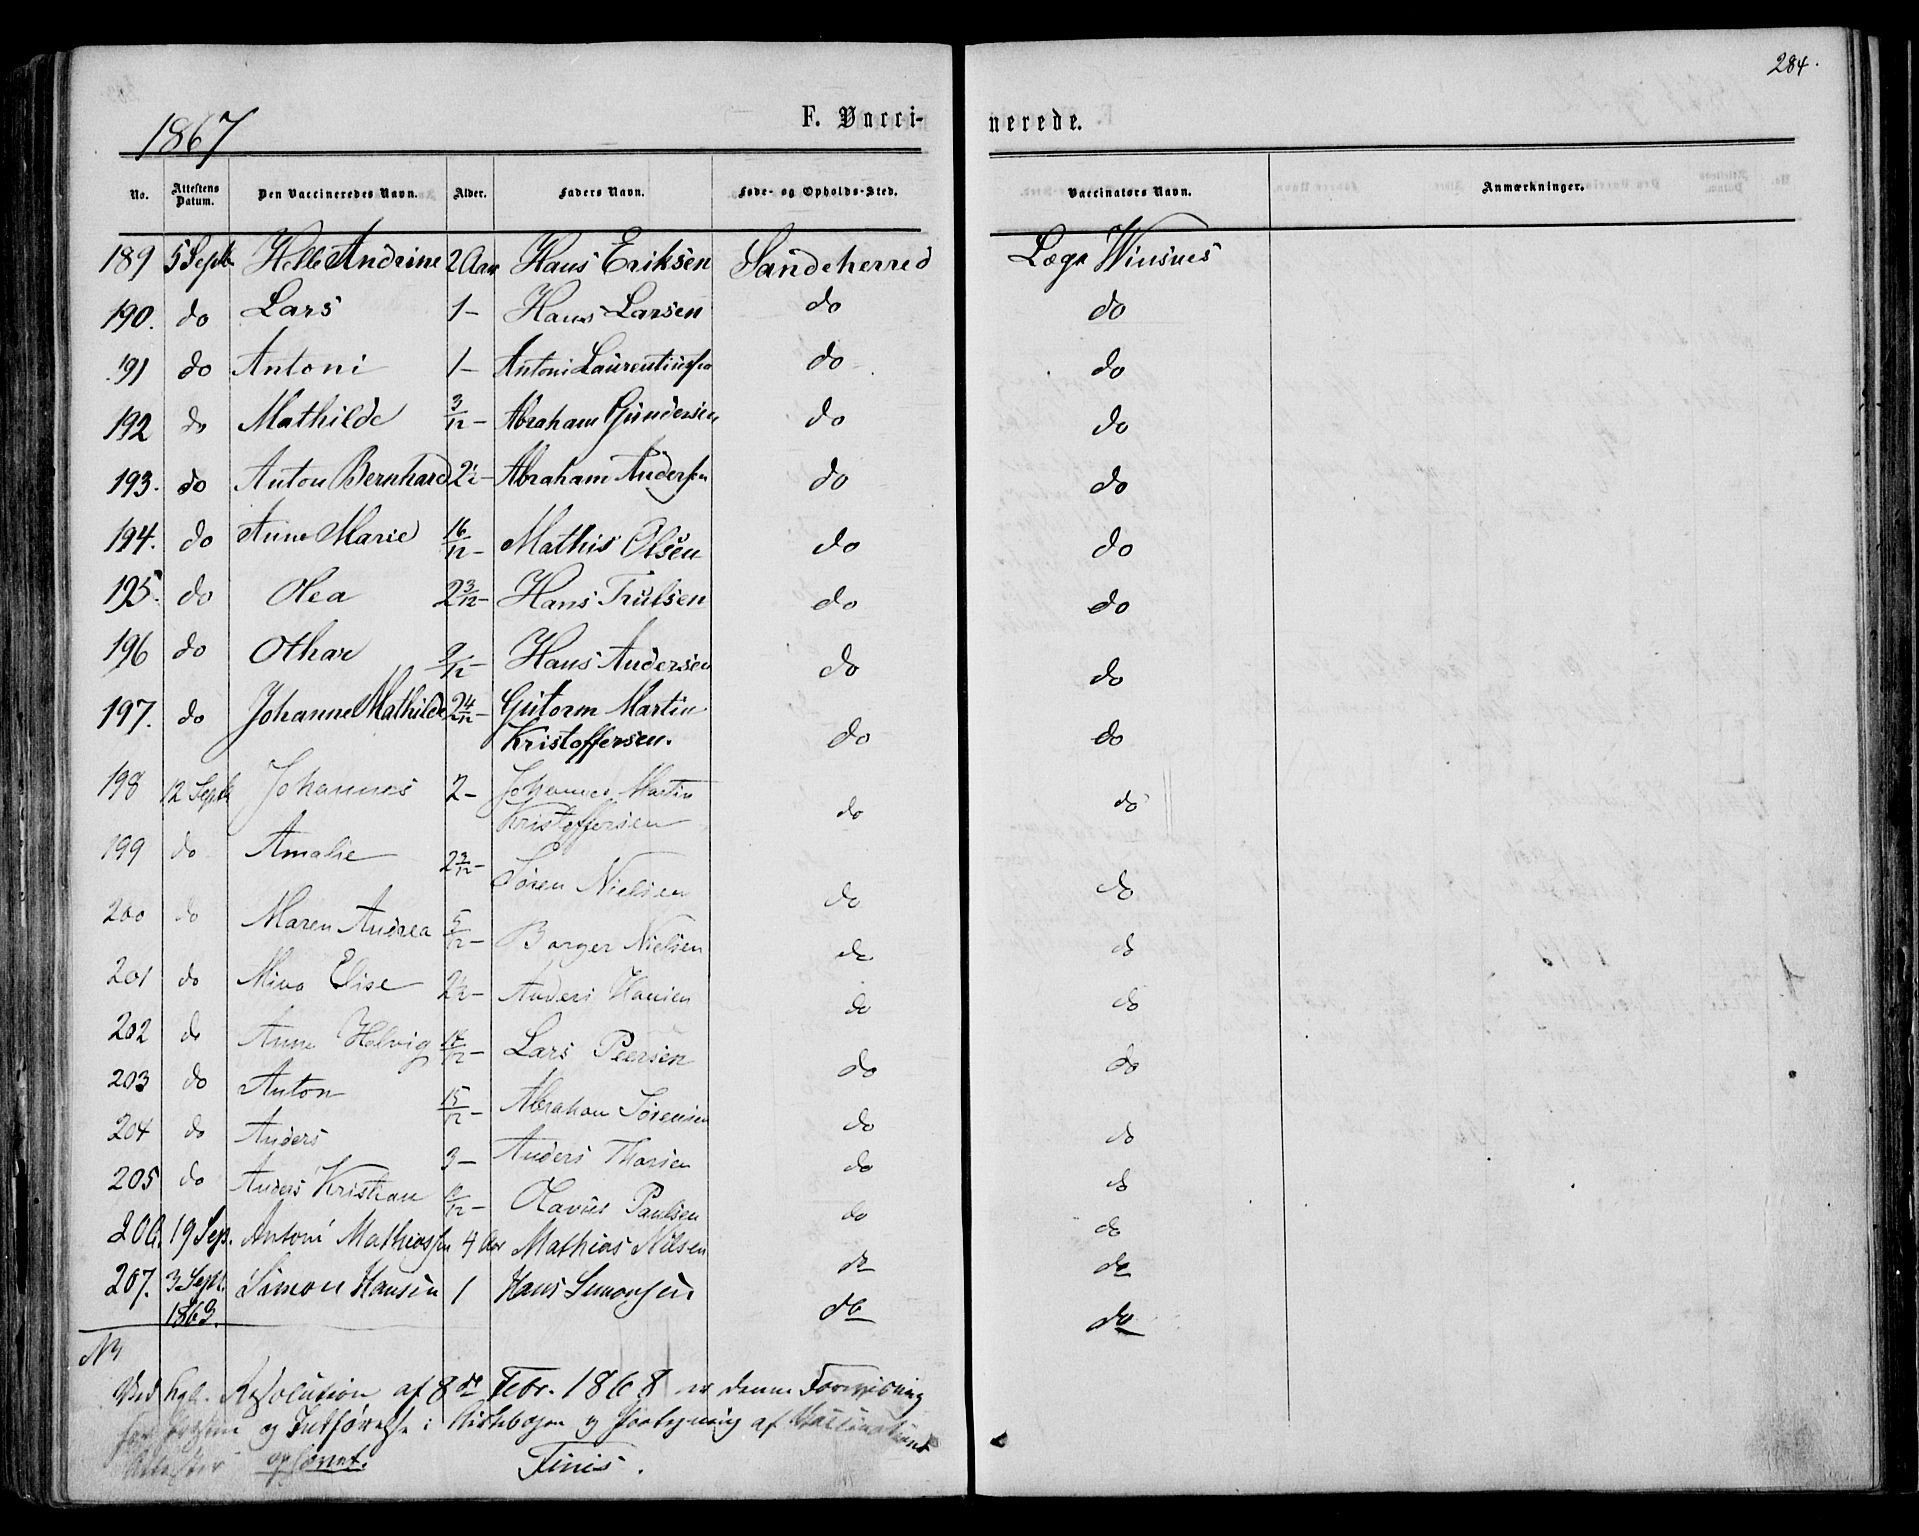 284.
1867
F. Vacci-
nerede.
No. Attestens Datum. Den Vaccineredes Navn. Alder. Faders Navn. Føde- og Opholds-Sted. Vaccinators Navn. Anmærkninger.
189 5 Septb Helle Andrine 2 Aar Hans Eriksen Sandeherred Læge Winsnes
190. do Lars 1 – Hans Larsen do do
191 do Antoni 1 – Antoni Laurentiussen do do
192 do Mathilde 3/12 – Abraham Gundersen do do
193. do Anton Bernhard 2½ – Abraham Andersen do do
194. do Anne Marie 16/12 – Mathis Olsen do do
195. do Olea 2 3/12 – Hans Trulsen do do
196 do Othar 9/12 – Hans Andersen do do
197. do Johanne Mathilde 2 4/12 – Gutorm Martin
Kristoffersen. do do
198 12 Septb Johannes 2 – Johannes Martin
Kristoffersen do do
199 do Amalie 2 3/12 – Søren Nielsen do do
200 do Maren Andrea 5/12 – Borger Nielsen do do
201 do Mina Elise 2½ – Anders Hansen do do
202 do Anne Helvig /12 – Lars Peersen do do
203 do Anton 15/12 – Abraham Sørensen do do
204 do Anders 3 – Anders Thorsen do do
205 do Anders Kristian /12 – Olavus Paulsen do do
206. 19 Sep. Antoni Mathiassen 4 Aar Mathias Nilsen do do
207. 3 Septr. Simon Hansen 1 Hans Simonsen do do
1863.
NB
Ved kgl. Resolution af 8de Febr. 1868 er denne
og Indførelse i Kirkebogen og af
Attester ophævet. Finis.